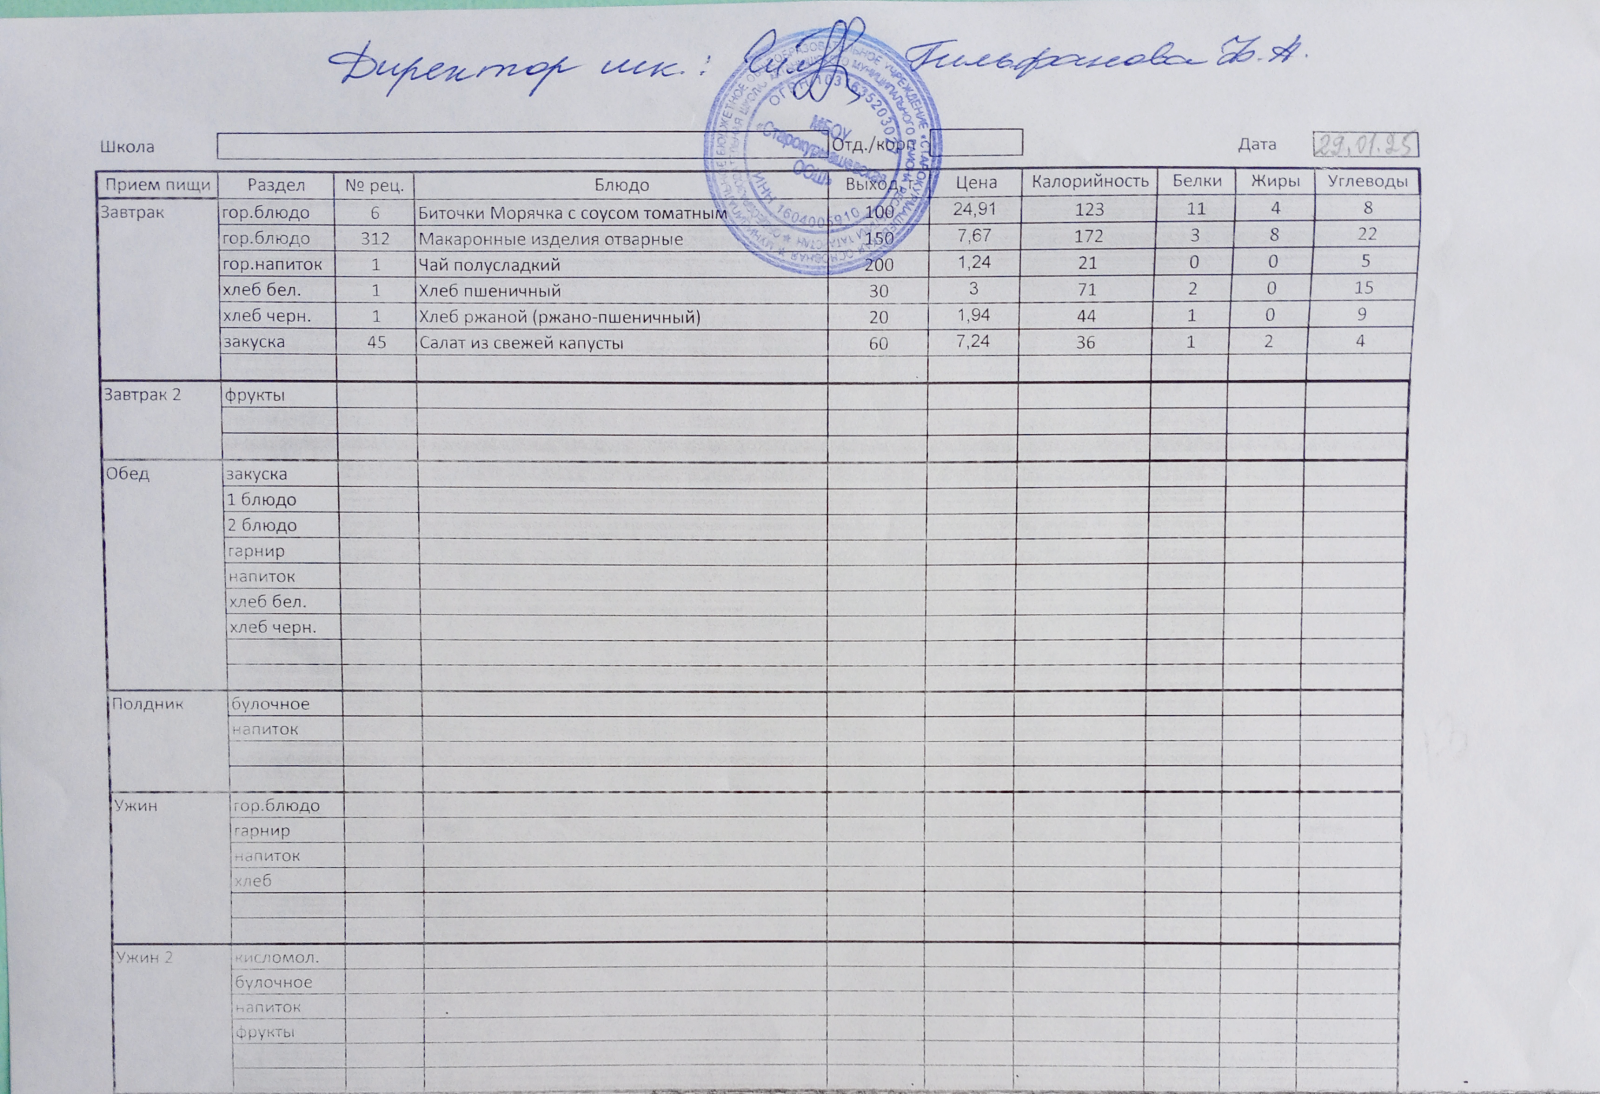 Директор шк.: Гильфанова Ф.А.
Школа Отд./корп Дата 29.01.25
Прием пищи Раздел № рец. Блюдо Выход, г Цена Калорийность Белки Жиры Углеводы
Завтрак гор.блюдо 6 Биточки Морячка с соусом томатным 100 24,91 123 11 4 8
гор.блюдо 312 Макаронные изделия отварные 150 7,67 172 3 8 22
гор.напиток 1 Чай полусладкий 200 1,24 21 0 0 5
хлеб бел. 1 Хлеб пшеничный 30 3 71 2 0 15
хлеб черн. 1 Хлеб ржаной (ржано-пшеничный) 20 1,94 44 1 0 9
закуска 45 Салат из свежей капусты 60 7,24 36 1 2 4
Завтрак 2 фрукты
Обед закуска
1 блюдо
2 блюдо
гарнир
напиток
хлеб бел.
хлеб черн.
Полдник булочное
напиток
Ужин гор.блюдо
гарнир
напиток
хлеб
Ужин 2 кисломол.
булочное
напиток
фрукты
МБОУ
«Старокурмашевская
ООШ»
ИНН 1604005910